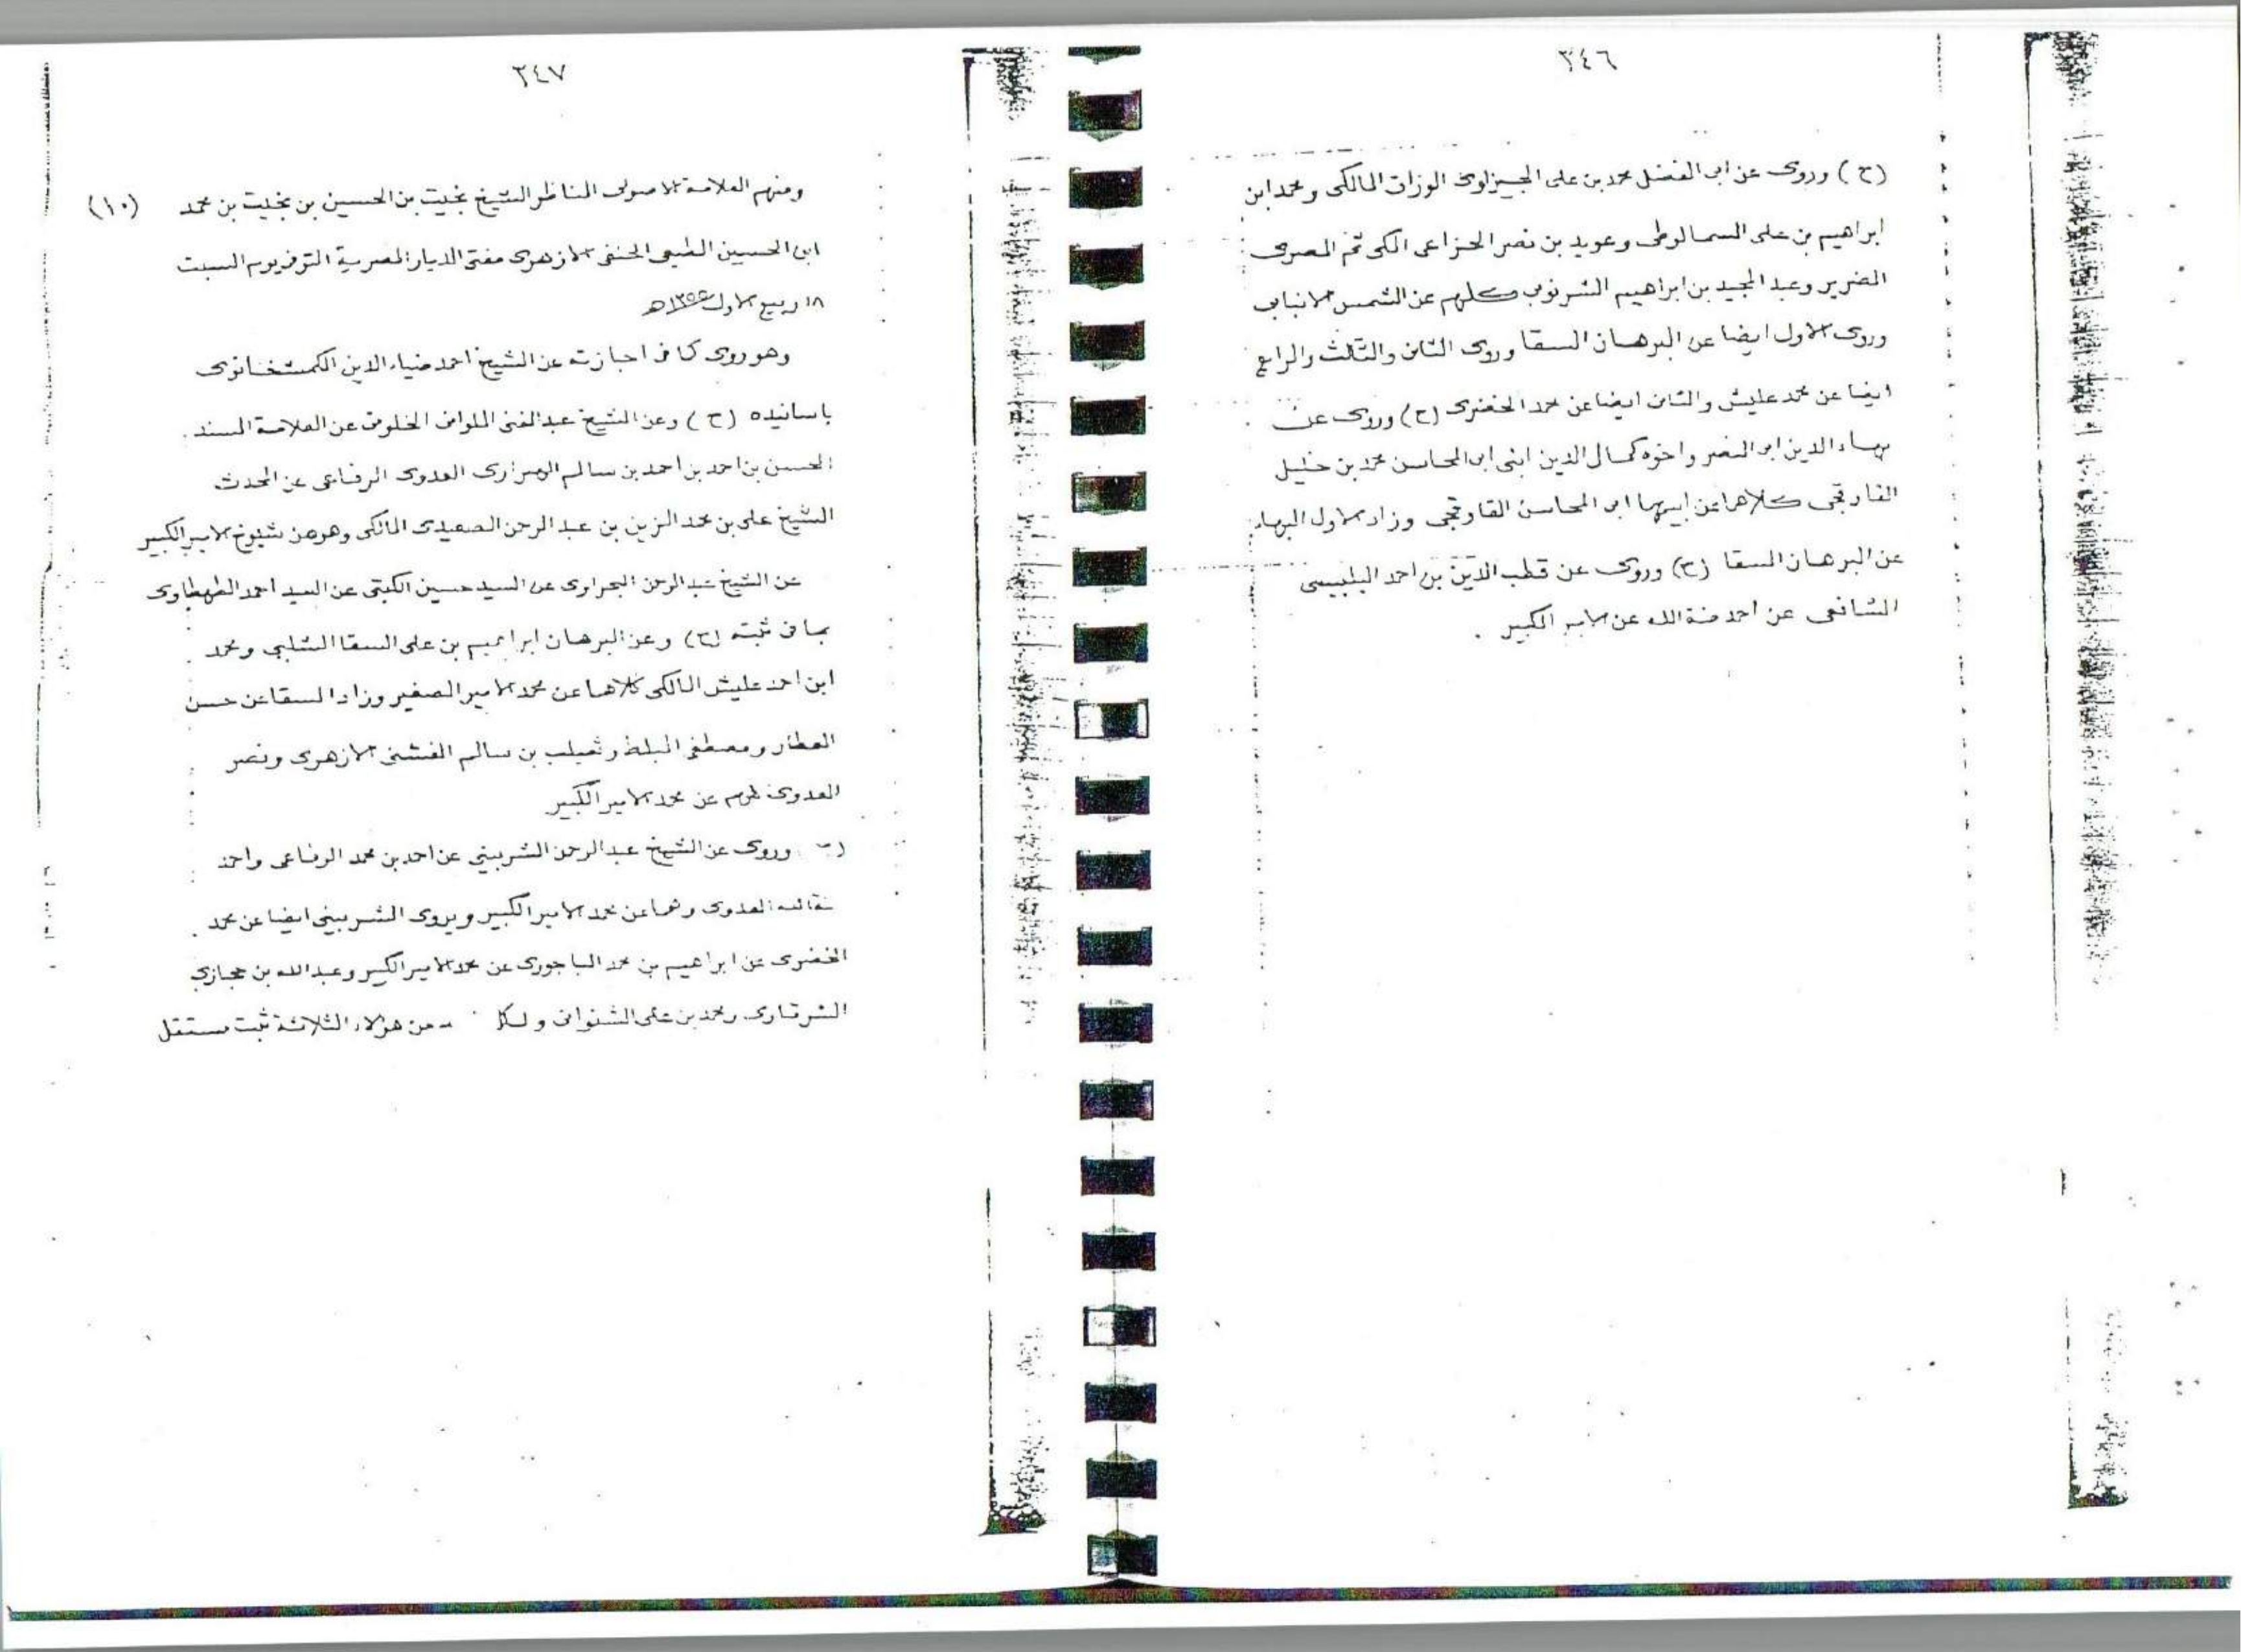 ٣٤٦
(ح) وروى عن ابى الفضل محمد بن على الجيزاوى الوراق المالكى ومحمد ابن
ابراهيم بن على السمالوطى وعويد بن نصر الخزاعى المكى ثم المصرى
الضرير وعبد المجيد بن ابراهيم الشرنوبى كلهم عن الشمس الانبابى
وروى الاول ايضا عن البرهان السقا وروى الثانى والثالث والرابع
ايضا عن محمد عليش والثانى ايضا عن محمد الخضرى (ح) وروى عن
بهاء الدين ابو النصر واخوه كمال الدين ابنى ابى المحاسن محمد بن خليل
القاوقجى كلاهما عن ابيهما ابى المحاسن القاوقجى وزاد الاول البهاء
عن البرهان السقا (ح) وروى عن قطب الدين بن احمد البلبيسى
الشافعى عن احمد منة الله عن الامير الكبير .
٣٤٧
(١٠) ومنهم العلامة الاصولى المناظر الشيخ بخيت بن الحسين بن بخيت بن محمد
ابن الحسين المطيعى الحنفى الازهرى مفتى الديار المصرية المتوفى يوم السبت
١٨ ربيع الاول
وهو روى كما فى اجازته عن الشيخ احمد ضياء الدين الكمشخانوى
باسانيده (ح) وعن الشيخ عبد الغنى الملوانى الخلوتى عن العلامة المسند
الحسن بن احمد بن احمد بن سالم العدوى الرفاعى عن المحدث
الشيخ على بن محمد الزين بن عبد الرحمن الصعيدى المالكى وهو من شيوخ الامير الكبير
عن الشيخ عبد الرحمن البحراوى عن السيد حسين الكتبى عن السيد احمد الطهطاوى
بما فى ثبته (ح) وعن البرهان ابراهيم بن على السقا الشلبى ومحمد
ابن احمد عليش المالكى كلاهما عن محمد الامير الصغير وزاد السقا عن حسن
العطار ومصطفى البلط وثعيلب بن سالم الفشنى الازهرى ونصر
العدوى كلهم عن محمد الامير الكبير
وروى عن الشيخ عبد الرحمن الشربينى عن احمد بن محمد الرفاعى واحمد
العدوى وهما عن محمد الامير الكبير ويروى الشربينى ايضا عن محمد
الخضرى عن ابراهيم بن محمد الباجورى عن محمد الامير الكبير وعبد الله بن حجازى
الشرقاوى ومحمد بن على الشنوانى ولكل من هؤلاء الثلاثة ثبت مستقل